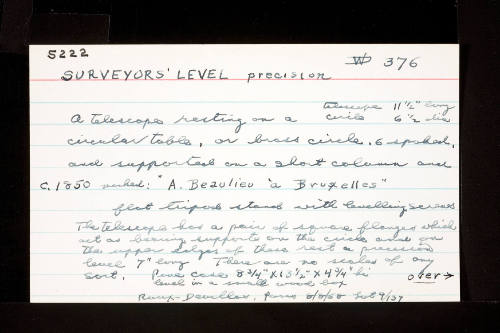 5222
W 376
SURVEYORS' LEVEL precision
telescope 11 1/2" long
circle 6 1/2 dia
A telescope resting on a
circular table, or brass circle, 6 spoked,
and supported on a short column and
c. 1850 marked: "A. Beaulieu à Bruxelles"
flat tripod stand with levelling screws
The telescope has a pair of square flanges which
act as bearing supports on the circle and on
the upper edges of these rest a precision
level 7" long There are no scales of any
sort. Pine case 8 3/4" X 13 1/2" X 4 3/4" hi
over →
level in a small wood box
Paris 5/8/58 Lot 9/137